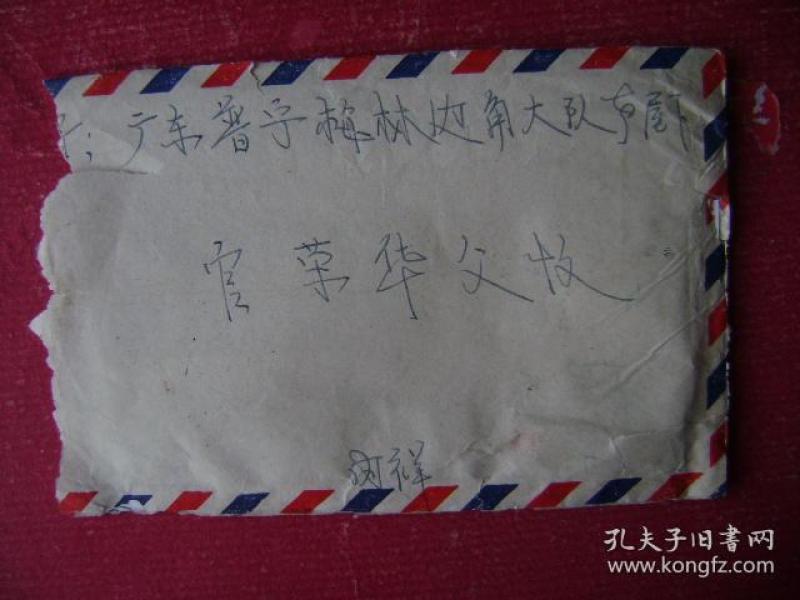 广东普宁梅林边角大队
官荣华父收
祥
孔夫子旧书网
www.kongfz.com